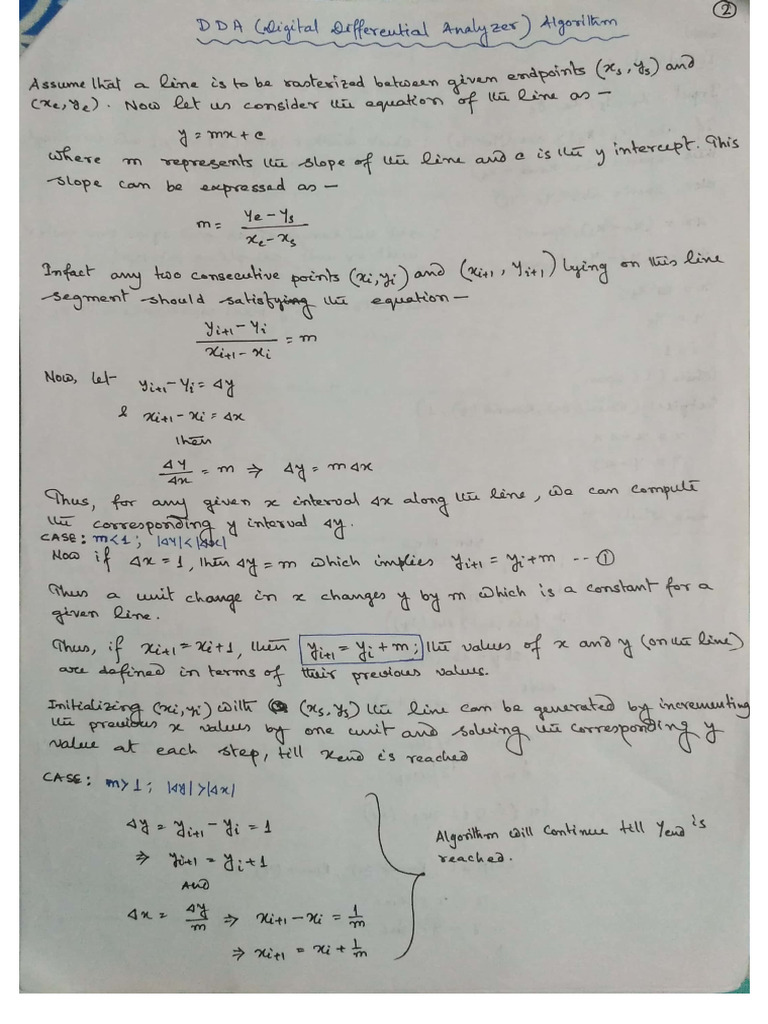 2
DDA (Digital Differential Analyzer) Algorithm
Assume that a line is to be rasterized between given endpoints (xs, ys) and
(xe, ye). Now let us consider the equation of the line as —
y = mx + c
where m represents the slope of the line and c is the y intercept. This
slope can be expressed as —
m = (ye - ys) / (xe - xs)
Infact any two consecutive points (xi, yi) and (xi+1, yi+1) lying on this line
segment should satisfying the equation —
(yi+1 - yi) / (xi+1 - xi) = m
Now, let yi+1 - yi = Δy
& xi+1 - xi = Δx
then
Δy/Δx = m ⇒ Δy = mΔx
Thus, for any given x interval Δx along the line, we can compute
the corresponding y interval Δy.
CASE: m<1; |Δy|<|Δx|
Now if Δx = 1, then Δy = m which implies yi+1 = yi + m --- ①
Thus a unit change in x changes y by m which is a constant for a
given line.
Thus, if xi+1 = xi + 1, then yi+1 = yi + m; the values of x and y (on the line)
are defined in terms of their previous values.
Initializing (xi, yi) with (xs, ys) the line can be generated by incrementing
the previous x values by one unit and solving the corresponding y
value at each step, till xend is reached
CASE: m>1; |Δy|>|Δx|
Δy = yi+1 - yi = 1
⇒ yi+1 = yi + 1
AND
Δx = Δy/m ⇒ xi+1 - xi = 1/m
⇒ xi+1 = xi + 1/m
Algorithm will continue till yend is
reached.